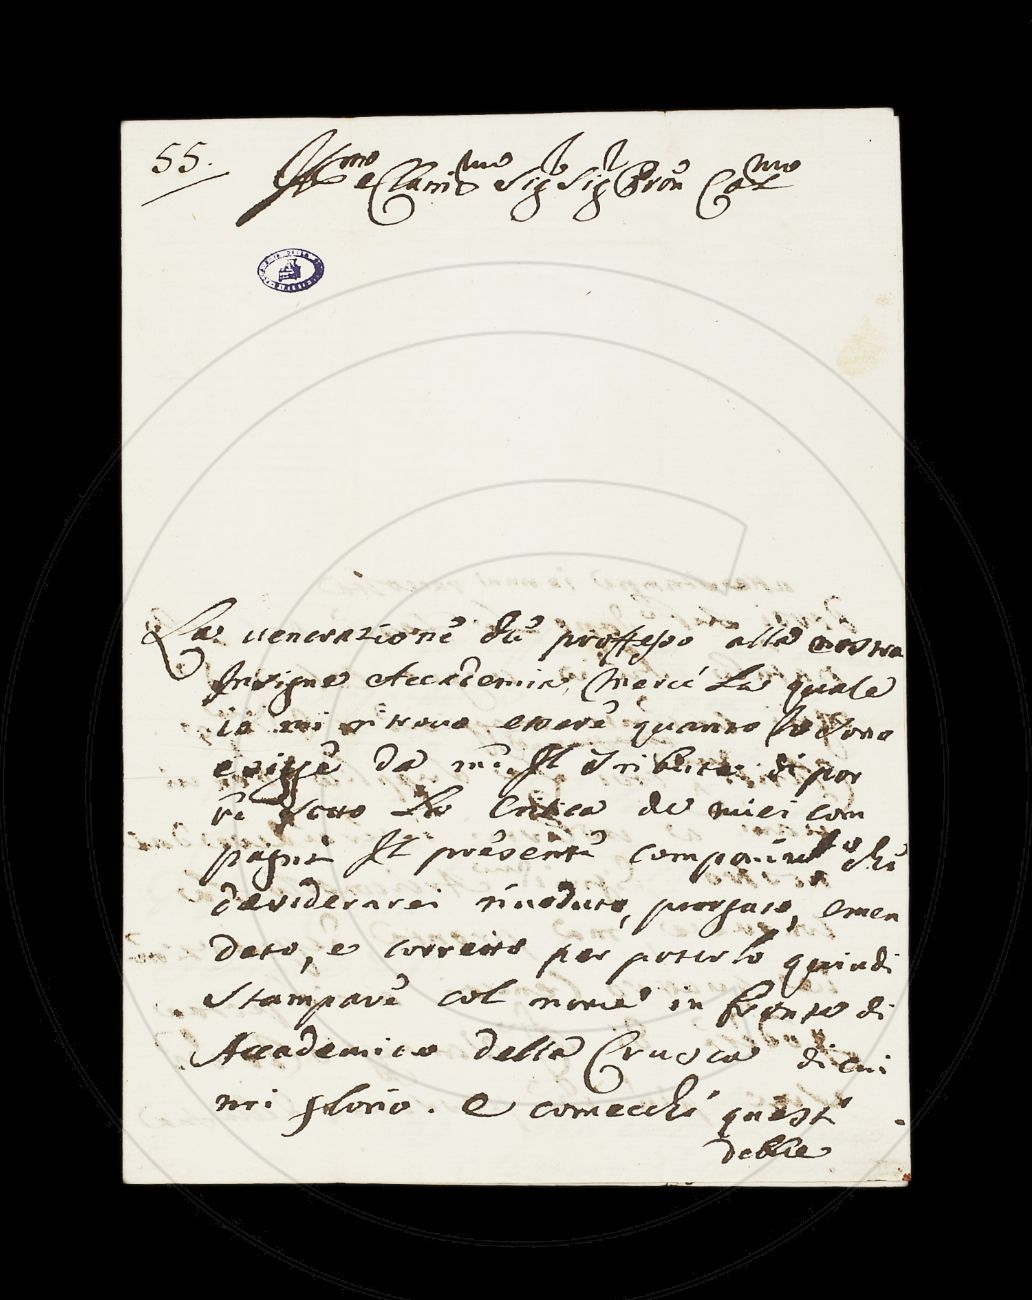 55.
Ill.mo e Clariss.mo Sig.r Sig.r Pron Col.mo
La uenerazione che professo alla nostra
Insigne Accademia, mercè la quale
io mi ritrovo essere quanto sono
esigge da me Il tributo di por
re sotto la Critica de miei com
pagni Il presente componim.to che
desiderarei riueduto, purgato, emen
dato, e corretto per poterlo quindi
stampare col nome in fronte di
Accademico della Crusca di cui
mi glorio. e comecchè quest
debbe